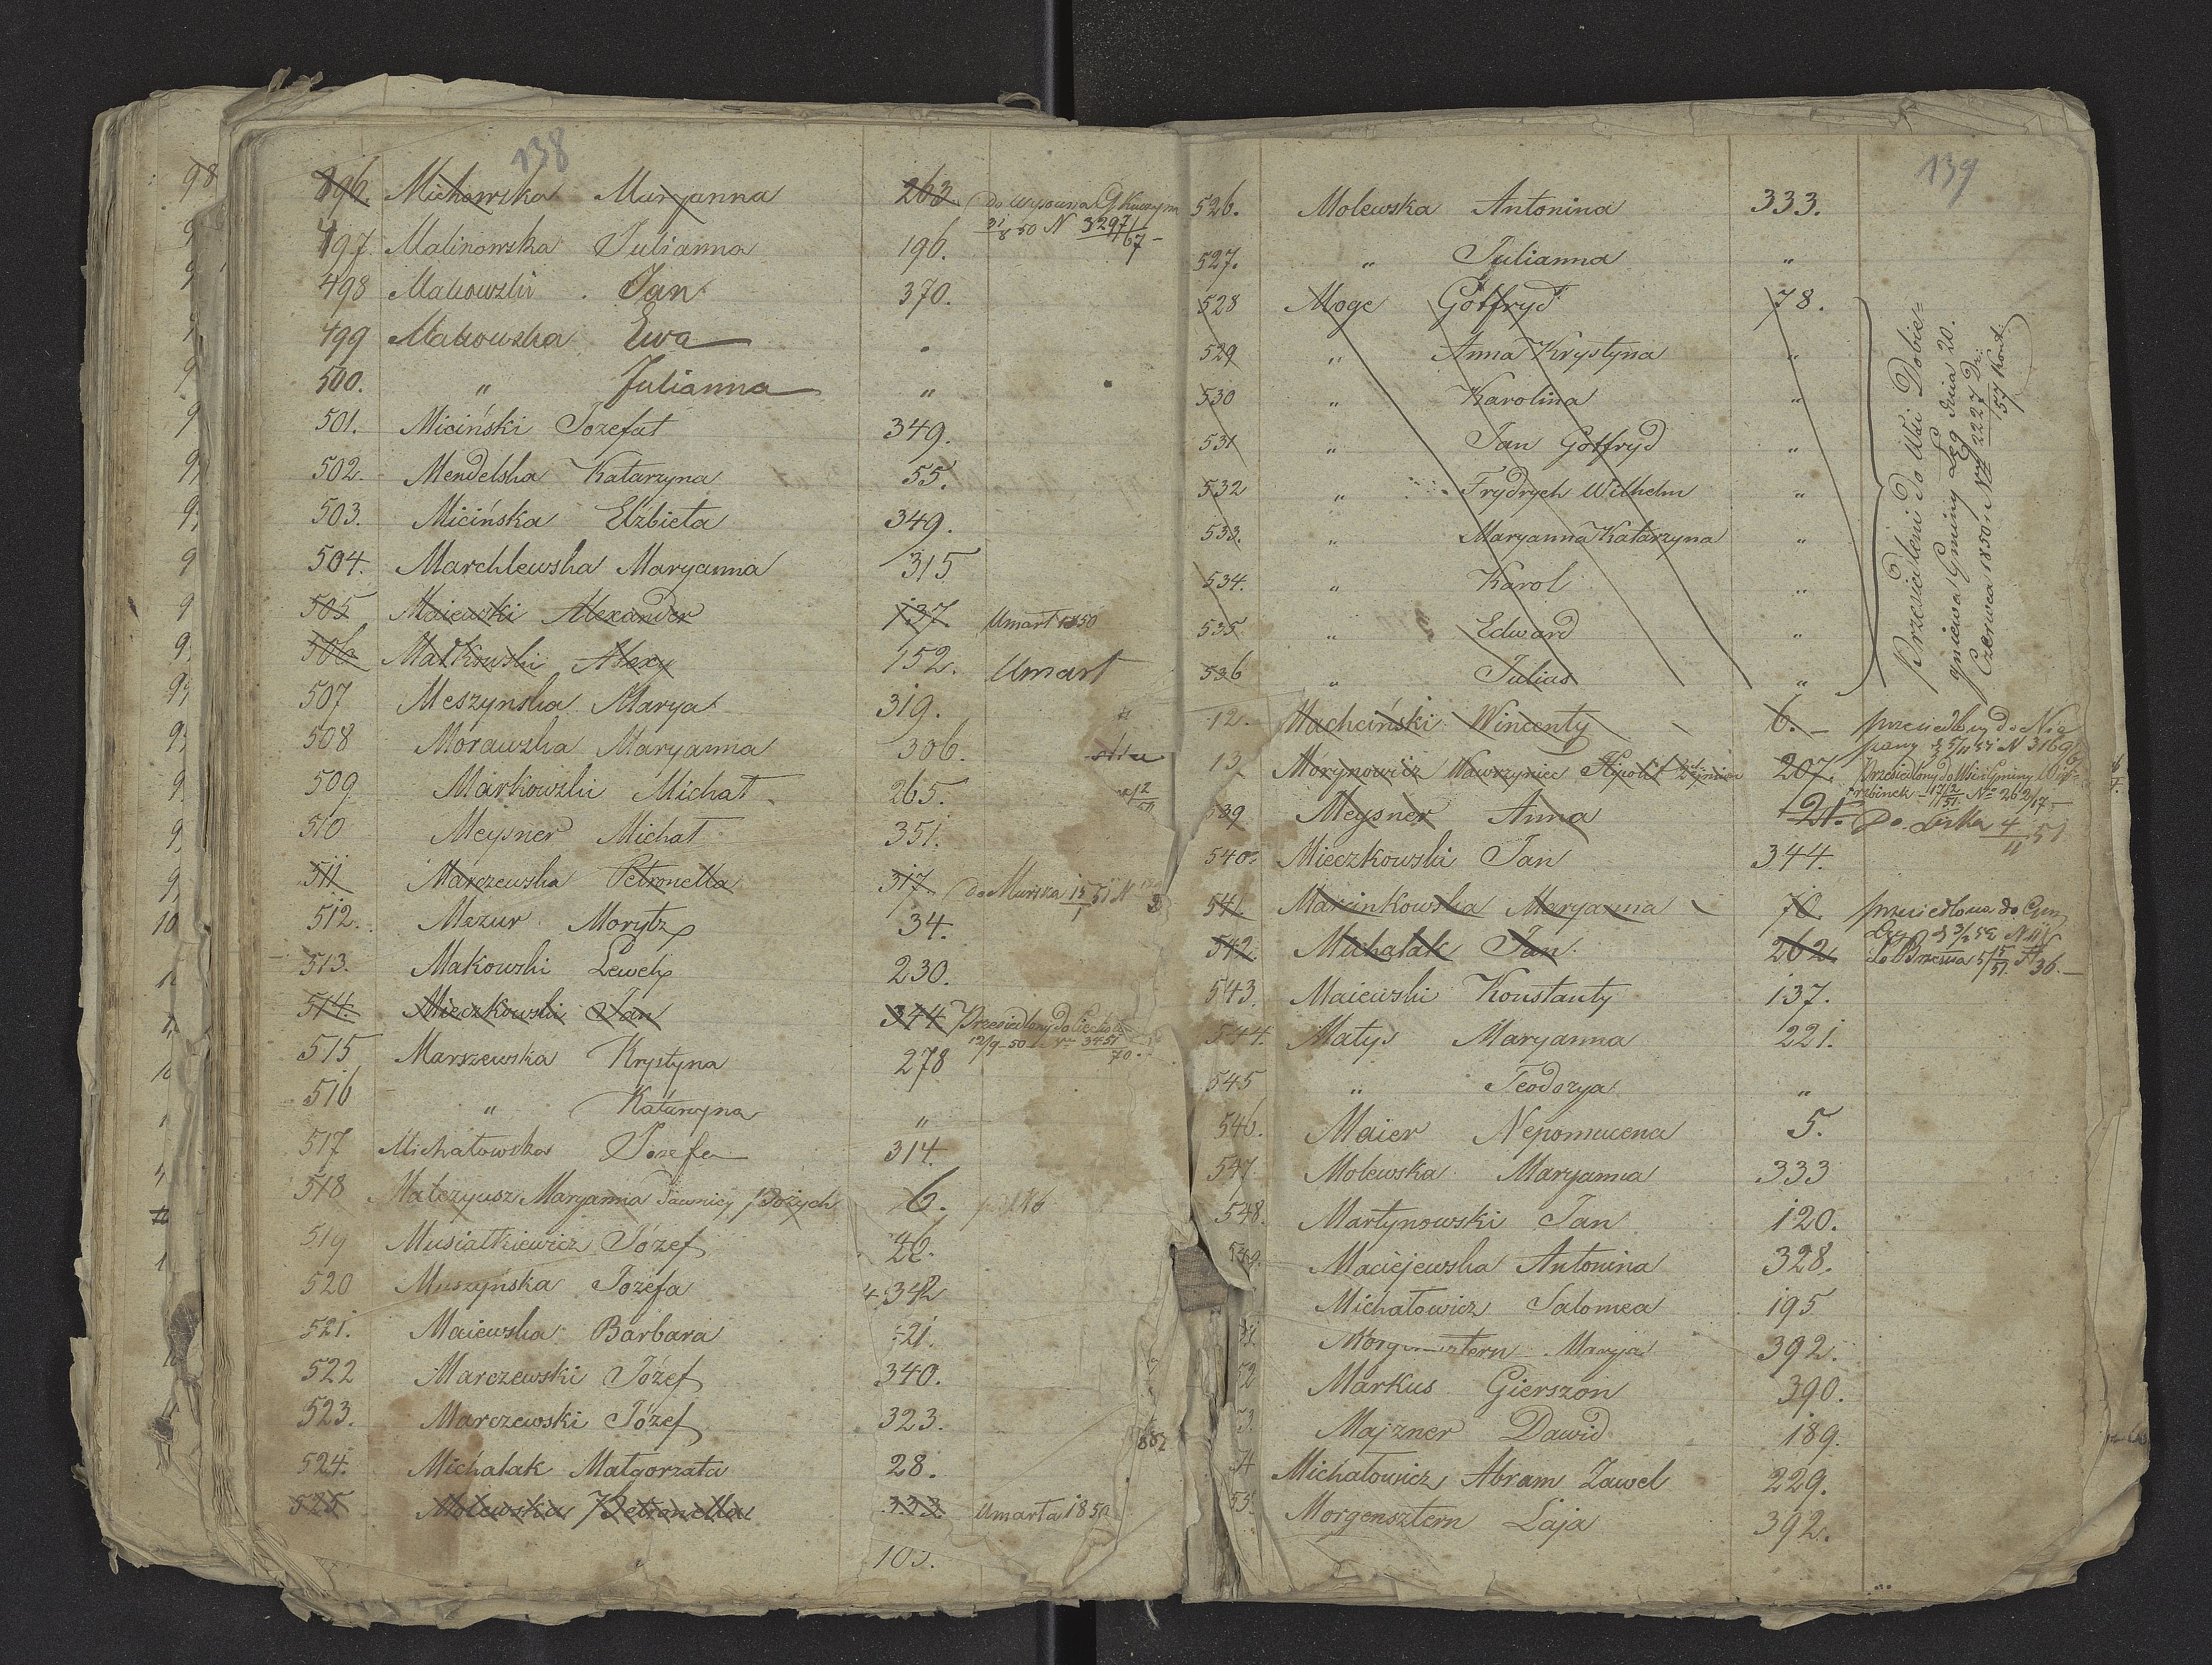 138
496. Michowska Maryanna 263.
31/8 50 N 3297/67
497. Malinowska Julianna 196.
498 Makowski Jan 370.
499 Makowska Ewa "
500. " Julianna "
501. Miciński Jozefat 349.
502. Mendelska Katarzyna 55.
503. Micińska Elżbieta 349.
504. Marchlewska Maryanna 315
505 Maiewski Alexander 137. Umarł 1850
506 Małkowski Alexy 152. Umarł
507 Meszynska Marya 319.
508 Morawska Maryanna 306.
509 Markowski Michał 265.
510 Meysner Michał 351.
511 Marczewska Petronella 317. do
512. Mezur Morytz 34.
513. Makowski Lewek 230.
514. Mieczkowski Jan 344 Przesiedlony do
12/9 - 50 N 3451/70.
515 Marszewska Krystyna 278
516 " Katarzyna "
517 Michałowska Józefa 314.
518 Mateyusz Maryanna 6.
519 Musiałkiewicz Józef
520 Muszyńska Jozefa 342
521. Maiewska Barbara 21.
522 Marczewski Józef 340.
523. Marczewski Józef 323.
524. Michalak Małgorzata 28.
525 Molewska Petronella 333. Umarła 1850
139
526. Molewska Antonina 333.
527. " Julianna "
528 Moge Gottfryd 78.
529 " Anna Krystyna "
530 " Karolina "
531 " Jan Gottfryd "
532 " Frydrych Wilhelm "
533. " Maryanna Katarzyna "
534. " Karol "
535 " Edward "
536 " Julius "
Przesiedleni do Wsi Dobie=
gniewa Gminy Łęg dnia 20.
Czerwca 1850. N 2227 Dz:
57 Kont.
12. Machciński Wincenty 6.
13 Morynowicz Wawrzyniec Hipolit 207. Przesiedlony do Wsi i Gminy
539 Meysner Anna 21. Do
540. Mieczkowski Jan 344.
541. Marcinkowska Maryanna 70. przesiedlona do
542. Michalak Jan 262
543. Maiewski Konstanty 137.
544. Matys Maryanna 221.
545 " Teodozya "
546. Maier Nepomucena 5.
547 Molewska Maryanna 333
548. Martynowski Jan 120.
549. Maciejewska Antonina 328.
Michałowicz Salomea 195
51. Morgensztern Marya 392.
52 Markus Gierszon 390.
53. Majzner Dawid 189.
54 Michałowicz Abram Zawel 229.
55. Morgensztern Łaja 392.